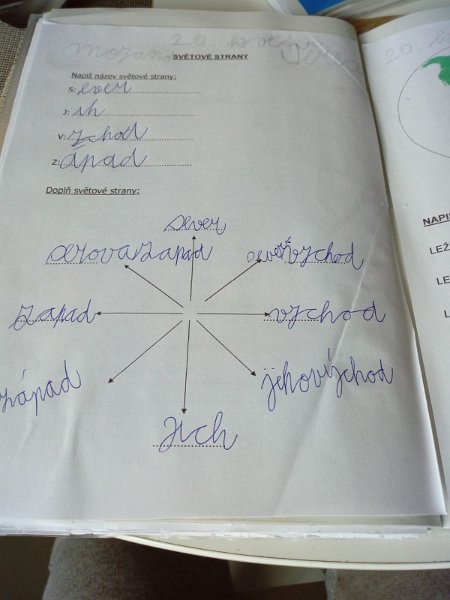 20. květ
SVĚTOVÉ STRANY
20.
Napiš název světové strany:
S: ever
J: ih
V: ýchod
Z: ápad
Doplň světové strany:
sever
serovazapad severévýchod
zapad východ
západ jihovíjchod
jich
NAPIS
LEŽ
LE
L